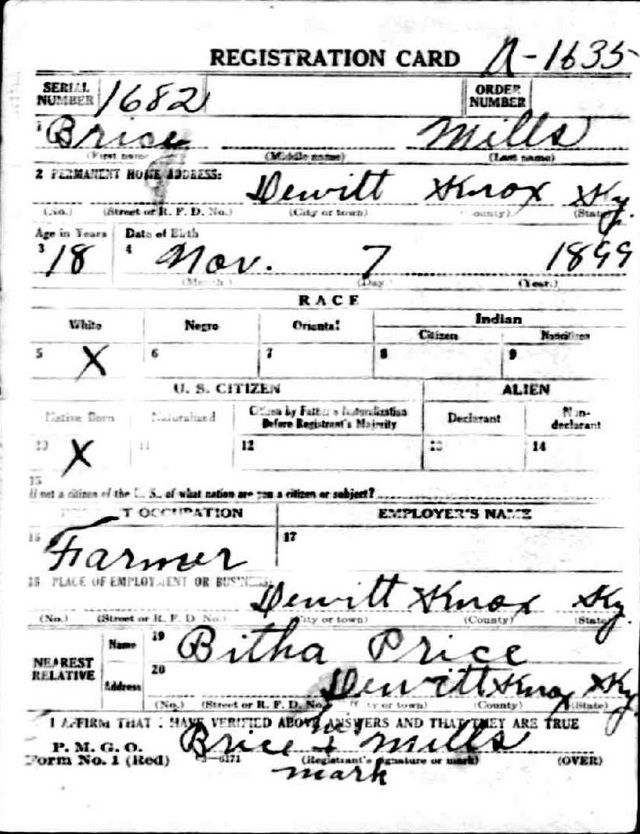 REGISTRATION CARD A-1635
SERIAL NUMBER 1682 ORDER NUMBER
1 Brice Mills
(First name) (Middle name) (Last name)
2 PERMANENT HOME ADDRESS: Dewitt Knox Ky.
(No.) (Street or R. F. D. No.) (City or town) (County) (State)
Age in Years Date of Birth
3 18 4 Nov. 7 1899
(Month) (Day) (Year.)
RACE
White Negro Oriental Indian
Citizen Noncitizen
5 X 6 7 8 9
U. S. CITIZEN ALIEN
Native Born Naturalized Citizen by Father's Naturalization Before Registrant's Majority Declarant Non-declarant
10 X 11 12 13 14
15
If not a citizen of the U. S., of what nation are you a citizen or subject?
T OCCUPATION EMPLOYER'S NAME
16 Farmer 17
18 PLACE OF EMPLOYMENT OR BUSINESS: Dewitt Knox Ky.
(No.) (Street or R. F. D. No.) (City or town) (County) (State)
NEAREST RELATIVE Name 19 Bitha Price
Address 20 Dewitt Knox Ky
(No.) (Street or R. F. D. No.) (City or town) (County) (State)
I AFFIRM THAT I HAVE VERIFIED ABOVE ANSWERS AND THAT THEY ARE TRUE
his
P. M. G. O. Brice X Mills
Form No. 1 (Red) 3-6171 (Registrant's signature or mark) (OVER)
mark